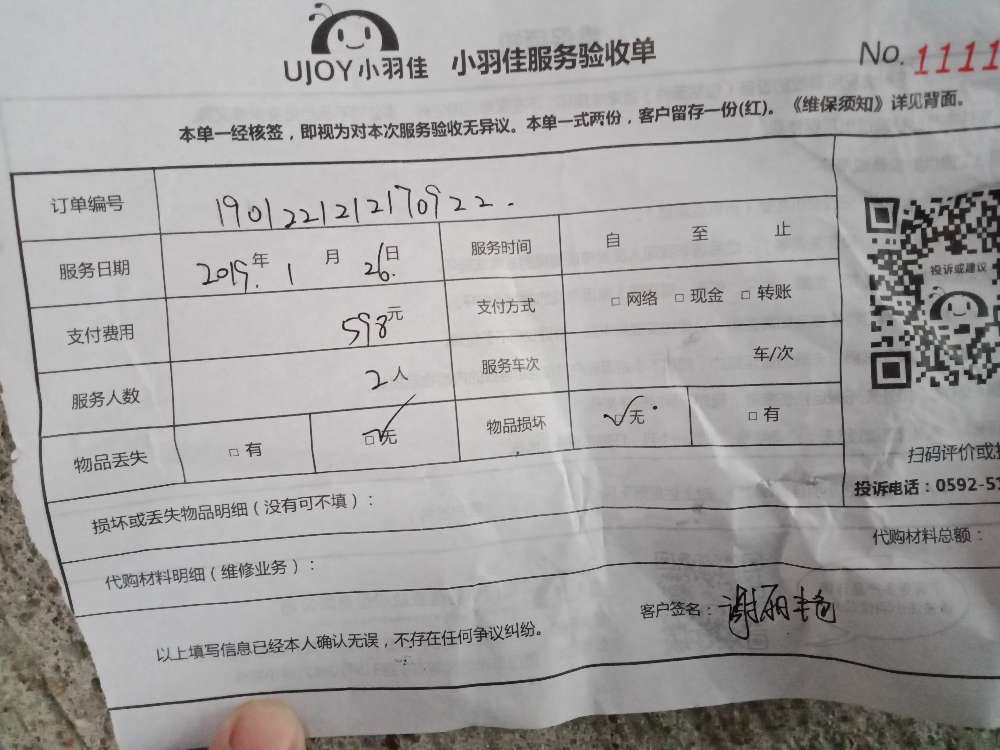 UJOY小羽佳 小羽佳服务验收单 No. 1111
本单一经核签，即视为对本次服务验收无异议。本单一式两份，客户留存一份(红)。《维保须知》详见背面。
订单编号 1901221212170922.
服务日期 2019年1月26日 服务时间 自 至 止
支付费用 598元 支付方式 □ 网络 □ 现金 □ 转账
服务人数 2人 服务车次 车/次
物品丢失 □ 有 □ 无 物品损坏 □ 无 □ 有
投诉或建议
扫码评价或
投诉电话：0592-51
损坏或丢失物品明细（没有可不填）：
代购材料明细（维修业务）： 代购材料总额：
以上填写信息已经本人确认无误，不存在任何争议纠纷。 客户签名：谢丽艳